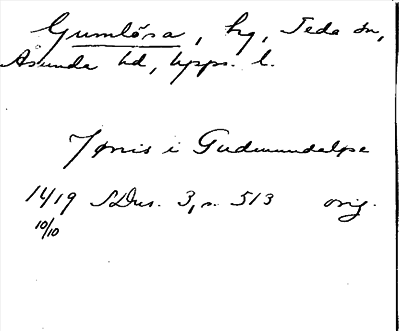 Gumlösa, by, Teda sn,
Åsunda hd, Upps. l.
Jønis i Gudmundaløse
1419 SDns. 3, s. 513 orig.
10/10